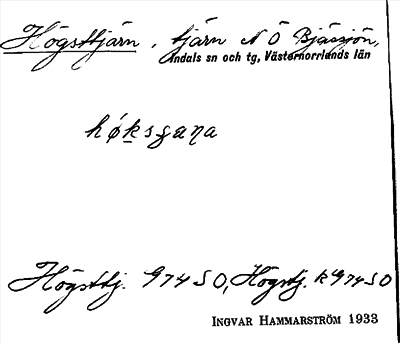 Högsttjärn, tjärn N Ö Bjässjön,
Indals sn och tg, Västernorrlands län
Högsttj. 974 S O, Högstj. k 974 S O
INGVAR HAMMARSTRÖM 1933